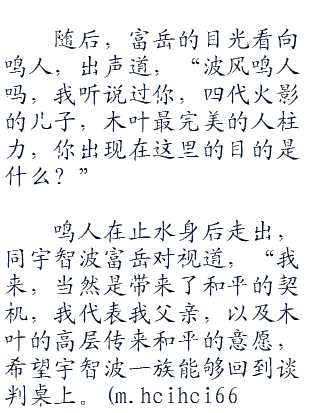 随后，富岳的目光看向
鸣人，出声道，“波风鸣人
吗，我听说过你，四代火影
的儿子，木叶最完美的人柱
力，你出现在这里的目的是
什么？”
鸣人在止水身后走出，
同宇智波富岳对视道，“我
来，当然是带来了和平的契
机，我代表我父亲，以及木
叶的高层传来和平的意愿，
希望宇智波一族能够回到谈
判桌上。(m.hcihci66